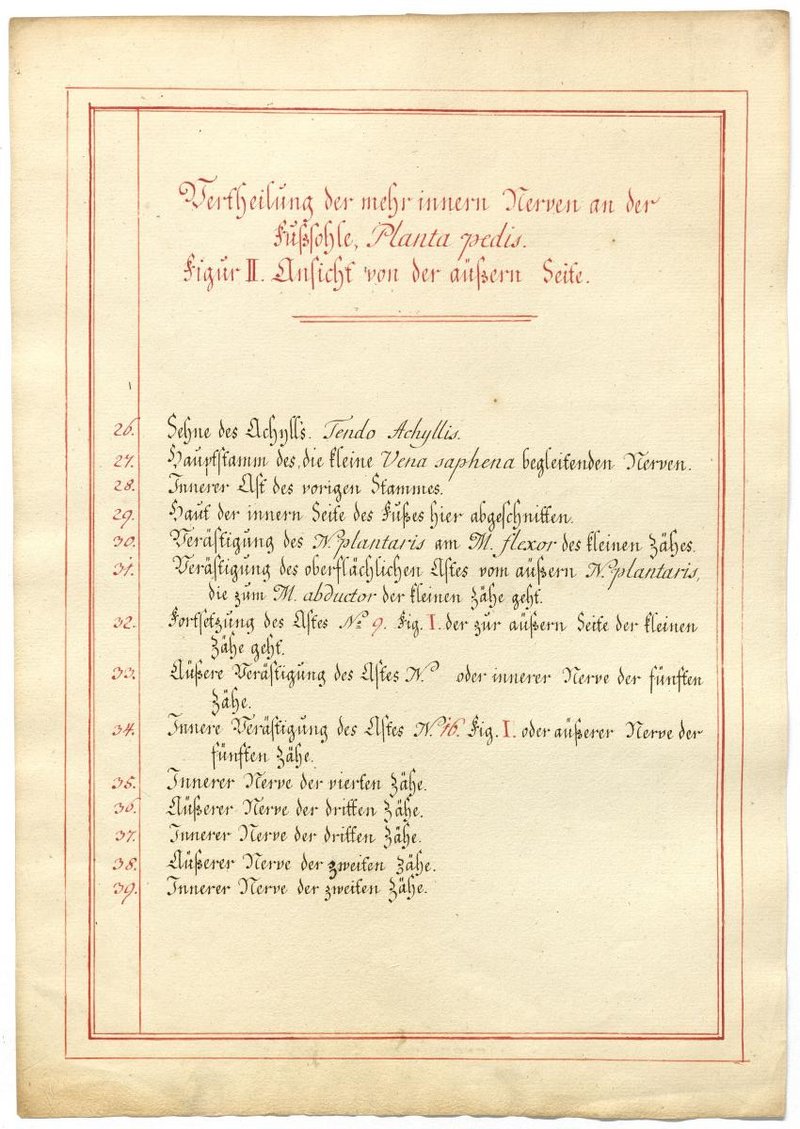 Vertheilung der mehr innern Nerven an der
Fußsohle, Planta pedis.
Figur II. Ansicht von der äußern Seite.
26. Sehne des Achylls. Tendo Achyllis.
27. Hauptstamm des, die kleine Vena saphena begleitenden Nerven.
28. Innerer Ast des vorigen Stammes.
29. Haut der innern Seite des Fußes hier abgeschnitten.
30. Verästigung des N. plantaris am M. flexor des kleinen Zähes.
31. Verästigung des oberflächlichen Astes vom äußern N. plantaris,
die zum M. abductor der kleinen Zähe geht.
32. Fortsetzung des Astes No 9. Fig. I. der zur äußern Seite der kleinen
Zähe geht.
33. Äußere Verästigung des Astes N.o oder innerer Nerve der fünften
Zähe.
34. Innere Verästigung des Astes N. 16. Fig. I. oder äußerer Nerve der
fünften Zähe.
35. Innerer Nerve der vierten Zähe.
36. Äußerer Nerve der dritten Zähe.
37. Innerer Nerve der dritten Zähe.
38. Äußerer Nerve der zweiten Zähe.
39. Innerer Nerve der zweiten Zähe.